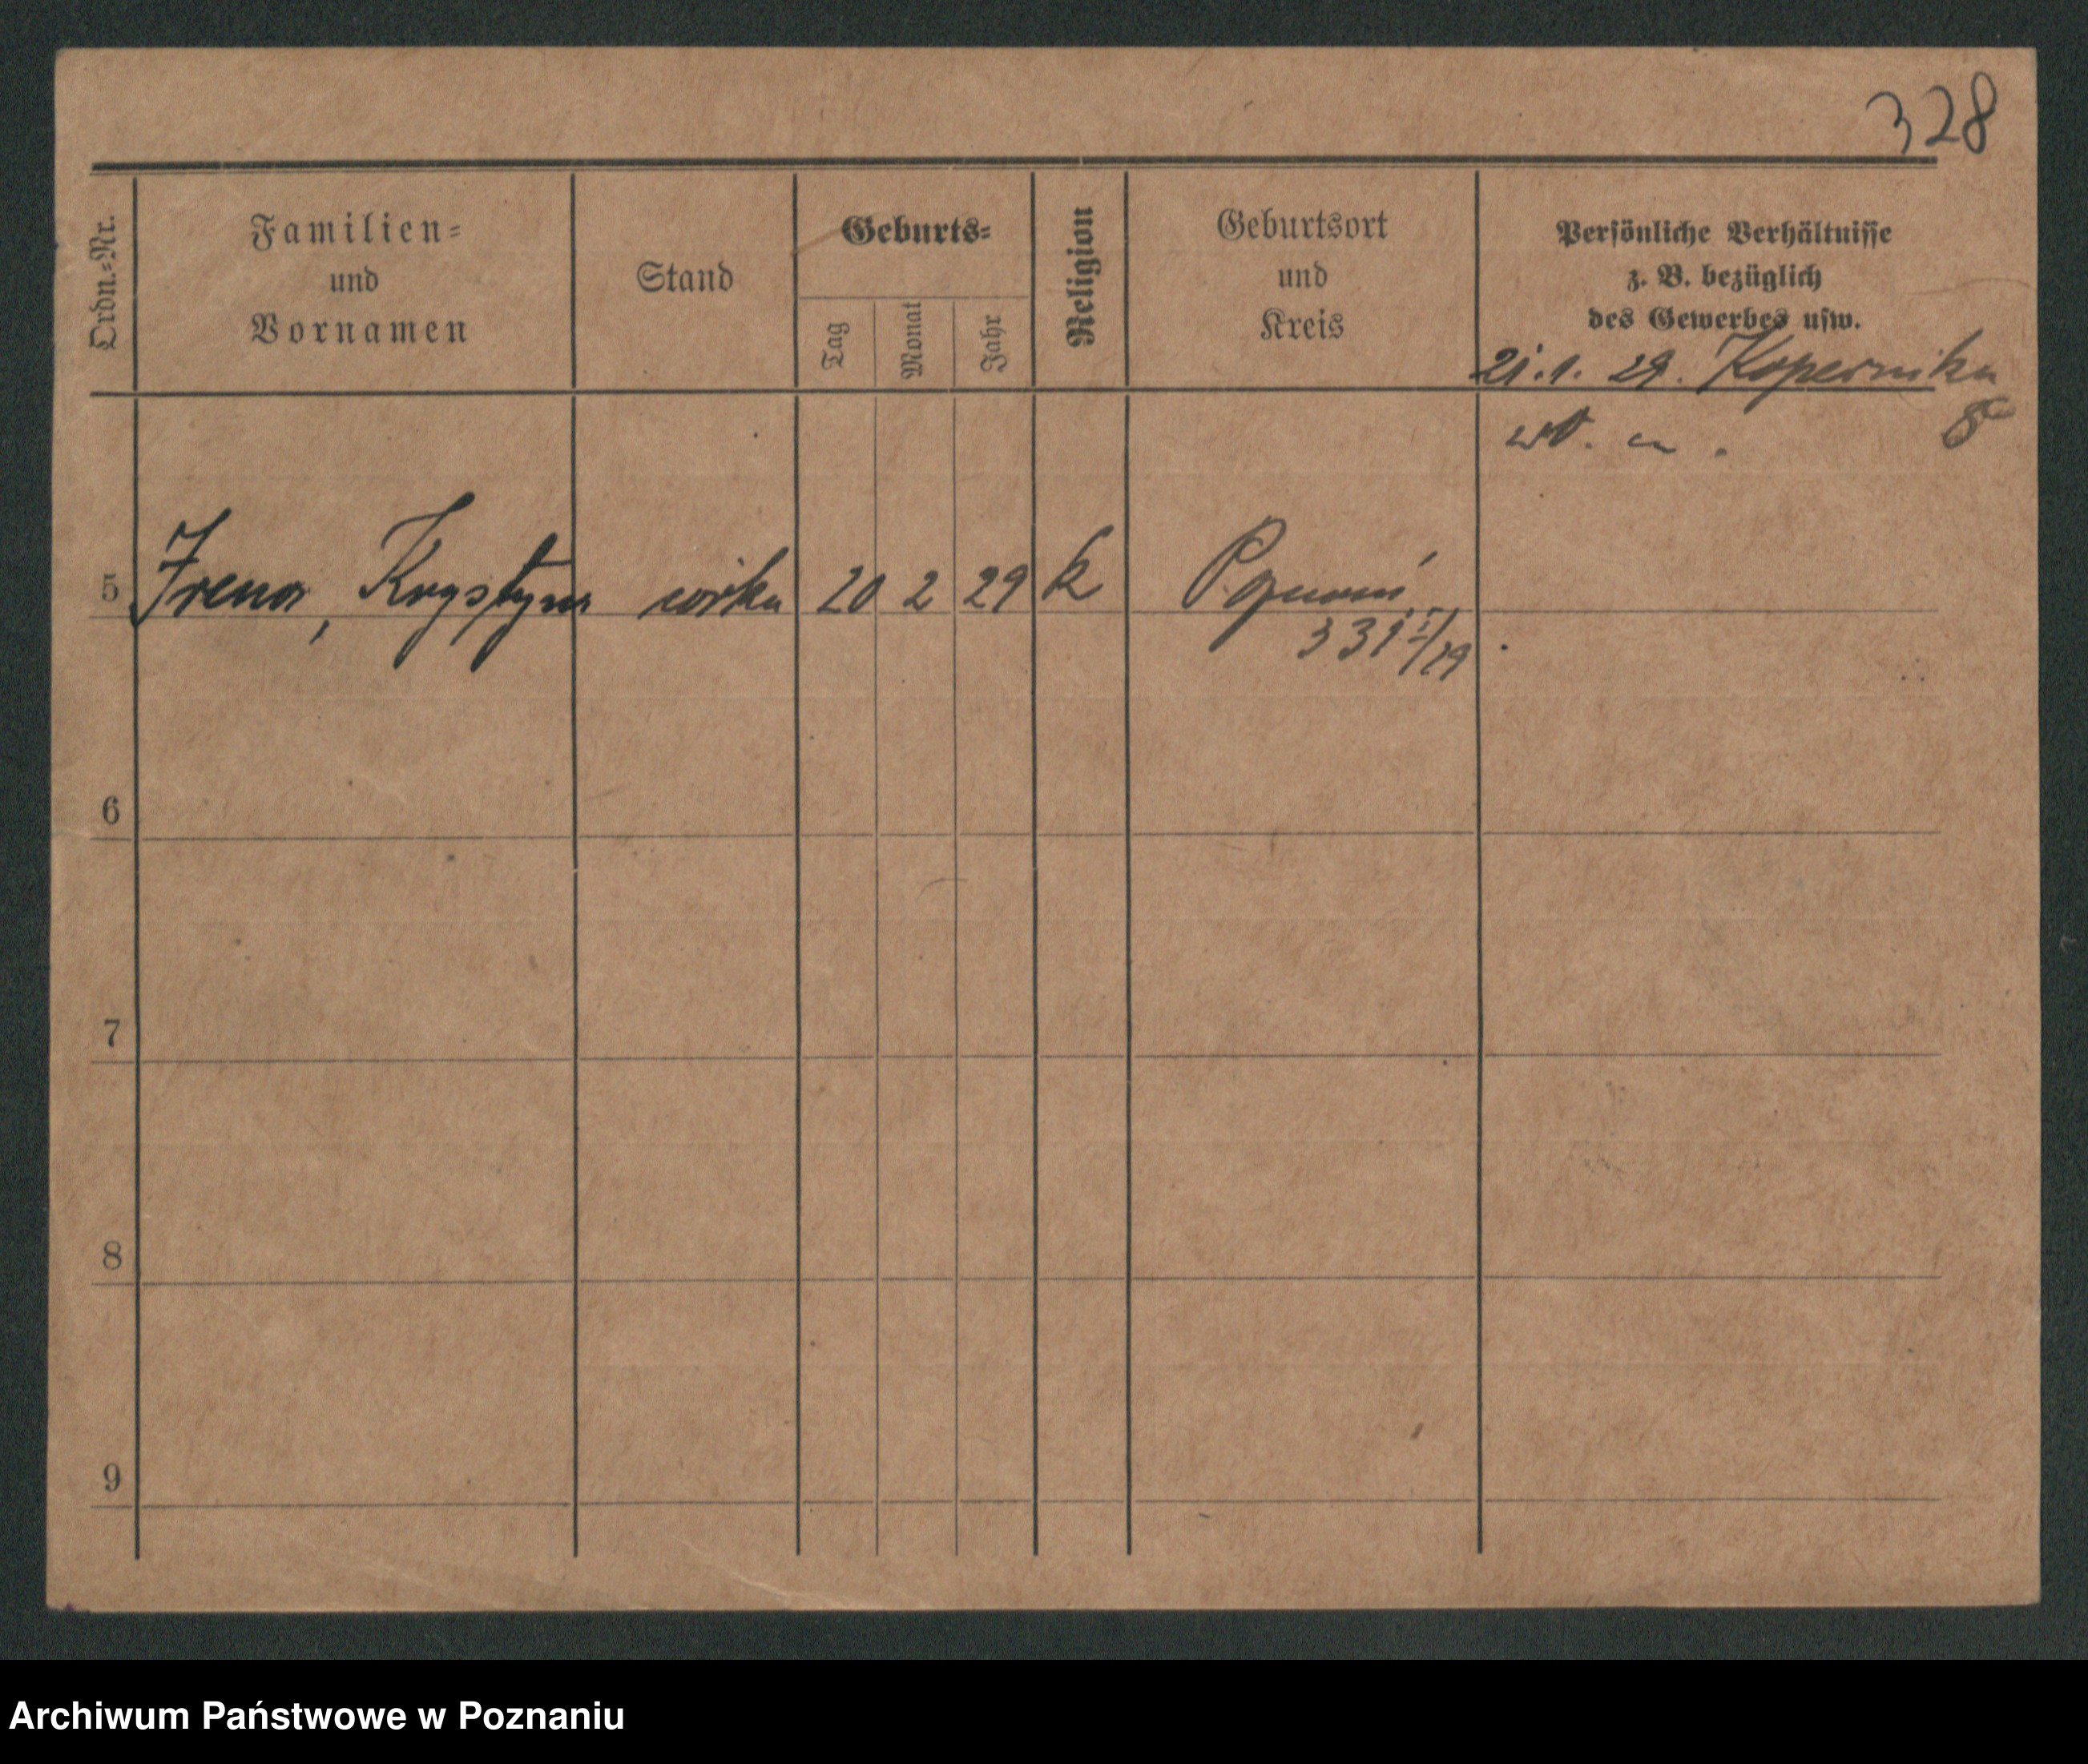 328
Ordn.=Nr.
Familien=
und
Vornamen
Stand
Geburts=
Tag
Monat
Jahr
Religion
Geburtsort
und
Kreis
Persönliche Verhältnisse
z. B. bezüglich
des Gewerbes usw.
21.1.29. Kopernika
8
5 Irena, Krystyna córka 20 2 29 k Poznań
331 I/29
6
7
8
9
Archiwum Państwowe w Poznaniu